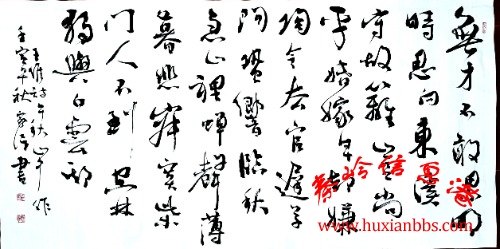 無才不敢累明
時思向東溪
守故籬豈厭尚
平婚嫁早却嫌
陶令去官遲草
間蛩響臨秋
急山裡蟬聲薄
暮悲寂寞柴
門人不到空林
獨與白雲期
王維詩早秋山中作
壬寅年秋書
www.huxianbbs.com